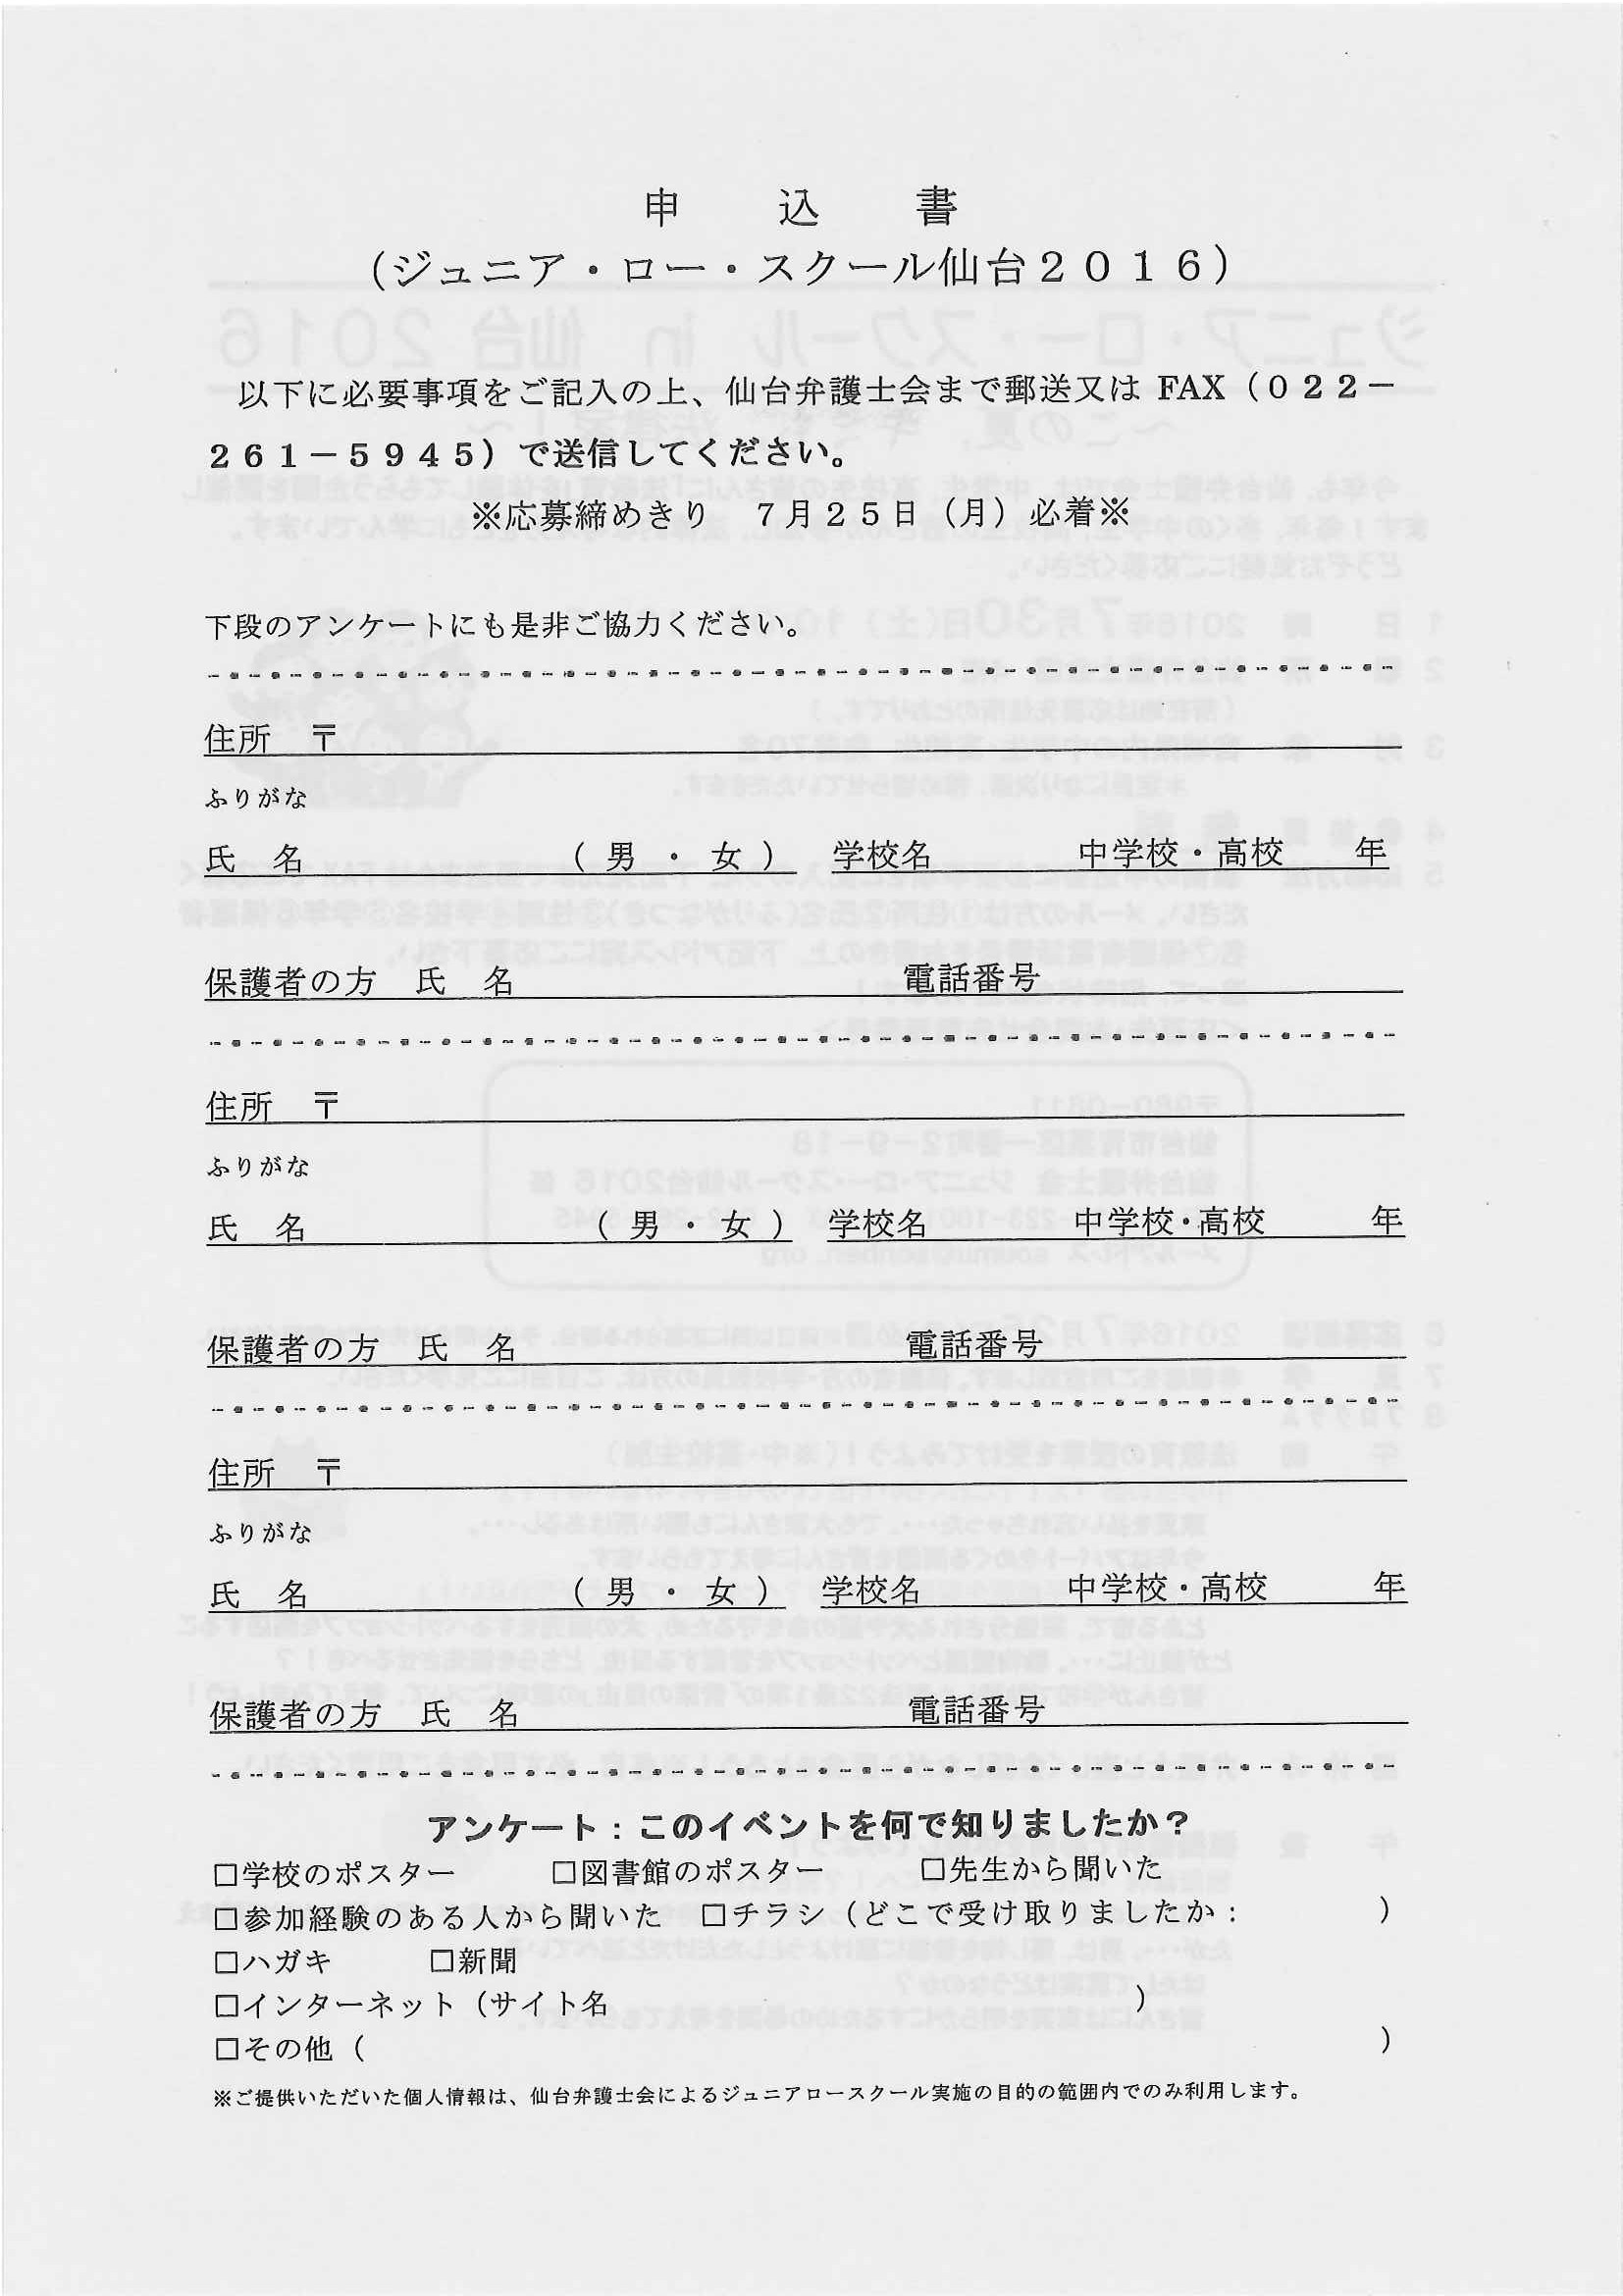 申　込　書
（ジュニア・ロー・スクール仙台２０１６）
以下に必要事項をご記入の上、仙台弁護士会まで郵送又は FAX（０２２－
２６１－５９４５）で送信してください。
※応募締めきり　７月２５日（月）必着※
下段のアンケートにも是非ご協力ください。
住所　〒
ふりがな
氏　名　（ 男 ・ 女 ）　学校名　中学校・高校　年
保護者の方　氏　名　電話番号
住所　〒
ふりがな
氏　名　（ 男 ・ 女 ）　学校名　中学校・高校　年
保護者の方　氏　名　電話番号
住所　〒
ふりがな
氏　名　（ 男 ・ 女 ）　学校名　中学校・高校　年
保護者の方　氏　名　電話番号
アンケート：このイベントを何で知りましたか？
□学校のポスター　□図書館のポスター　□先生から聞いた
□参加経験のある人から聞いた　□チラシ（どこで受け取りましたか：　）
□ハガキ　□新聞
□インターネット（サイト名　）
□その他（　）
※ご提供いただいた個人情報は、仙台弁護士会によるジュニアロースクール実施の目的の範囲内でのみ利用します。